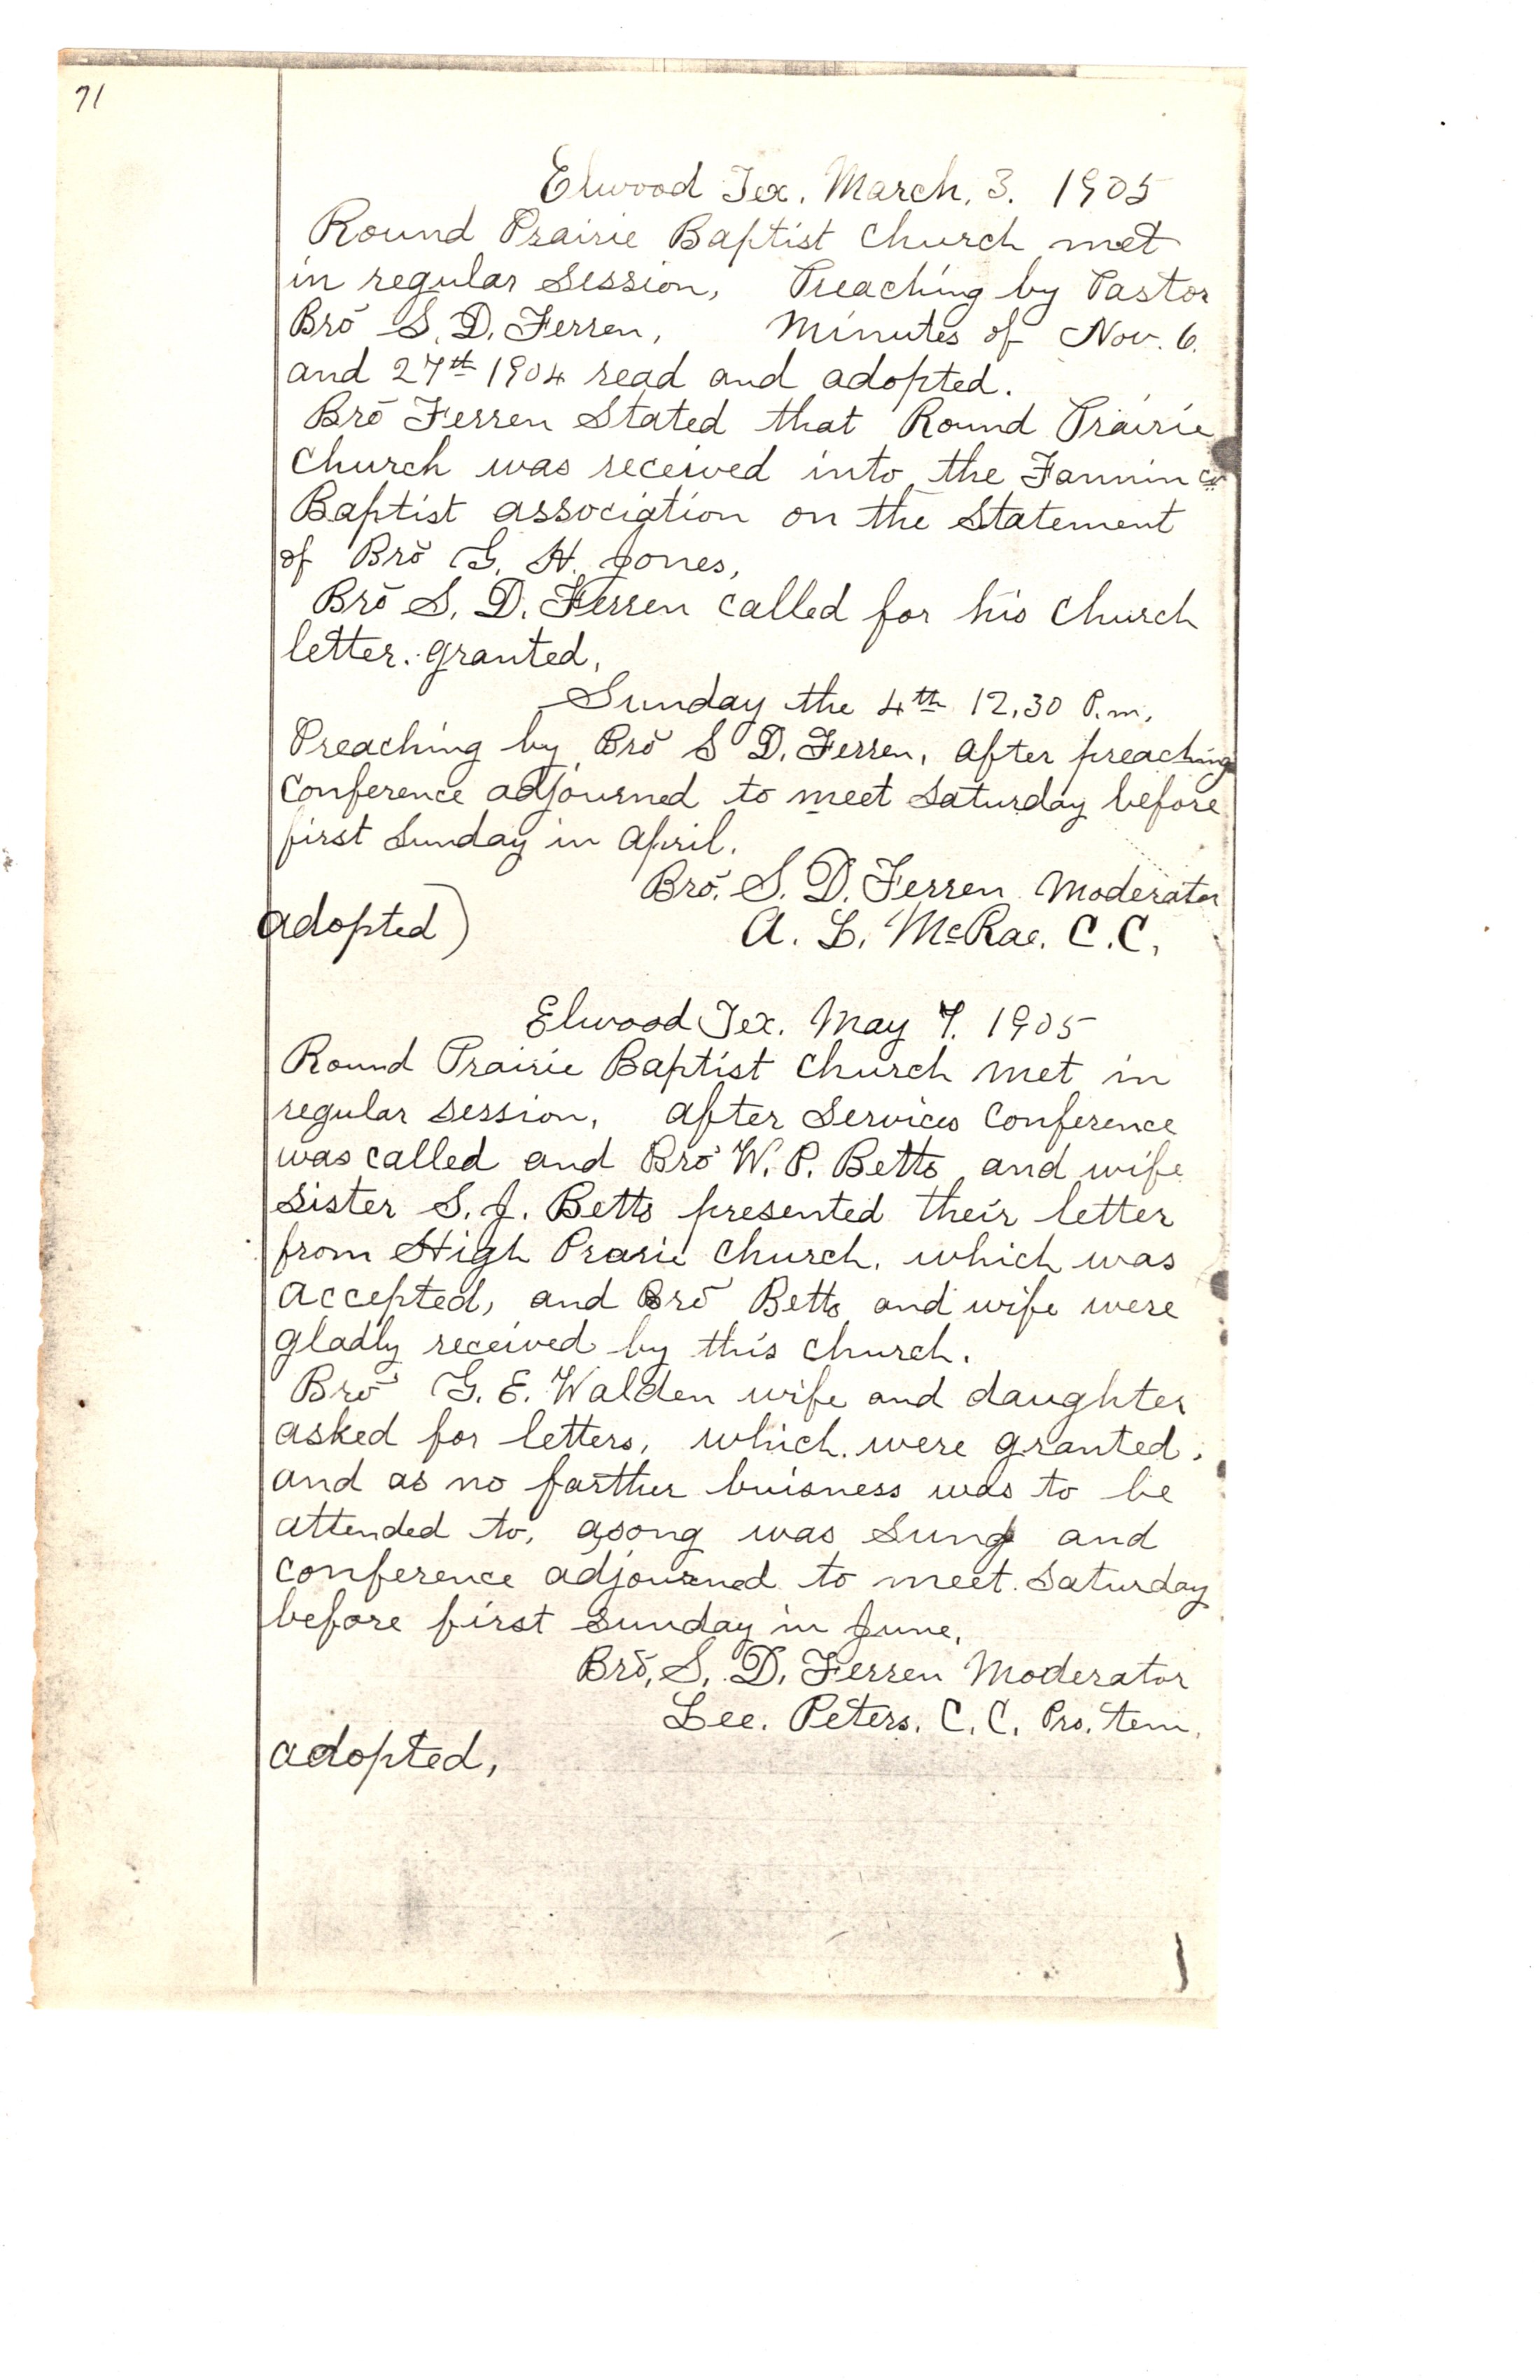 71
Elwood Tex. March. 3. 1905
Round Prairie Baptist Church met
in regular session, Preaching by Pastor
Bro S. D. Ferren, Minutes of Nov. 6.
and 27th 1904 read and adopted.
Bro Ferren Stated that Round Prairie
Church was received into the Fannin Co
Baptist association on the Statement
of Bro G. H. Jones,
Bro S. D. Ferren called for his church
letter. granted,
Sunday the 4th 12,30 P.m.
Preaching by Bro S D. Ferren, after preaching
Conference adjourned to meet Saturday before
first Sunday in April.
Bro. S. D. Ferren Moderator
adopted) A. L. McRae. C.C,
Elwood Tex. May 7. 1905
Round Prairie Baptist Church met in
regular session, after Services Conference
was called and Bro W. P. Betts and wife
Sister S. J. Betts presented their letter
from High Prarie Church, which was
accepted, and Bro Betts and wife were
gladly received by this church.
Bro G. E. Walden wife and daughter
asked for letters, which were granted,
and as no farther buisness was to be
attended to, a song was Sung and
conference adjourned to meet Saturday
before first Sunday in June,
Bro, S. D. Ferren Moderator
Lee. Peters. C. C. Pro. tem,
adopted,